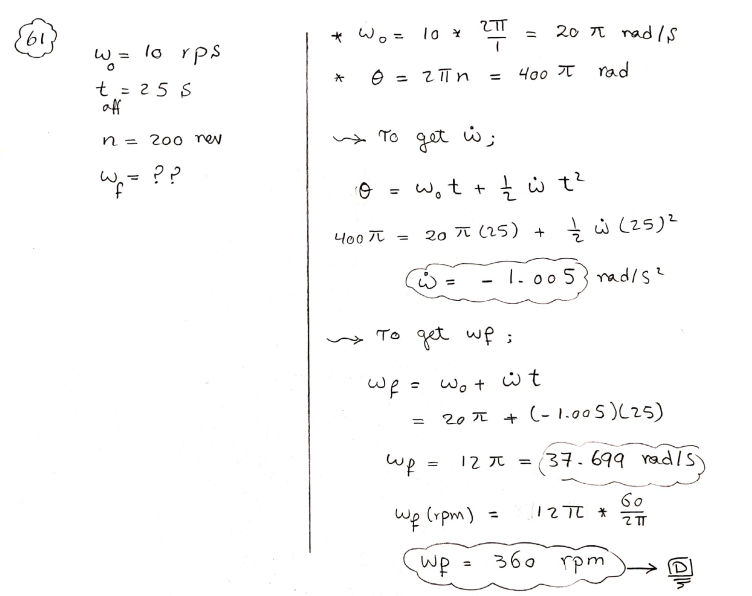 61
ω₀ = 10 rps
t_off = 25 s
n = 200 rev
ω_f = ??
* ω₀ = 10 * 2π/1 = 20 π rad/s
* θ = 2πn = 400 π rad
⇝ To get ω̇;
θ = ω₀t + 1/2 ω̇ t²
400π = 20π(25) + 1/2 ω̇ (25)²
ω̇ = - 1.005 rad/s²
⇝ To get ωf;
ωf = ω₀ + ω̇t
= 20π + (-1.005)(25)
ωf = 12π = 37.699 rad/s
ωf (rpm) = 12π * 60/2π
ωf = 360 rpm → D